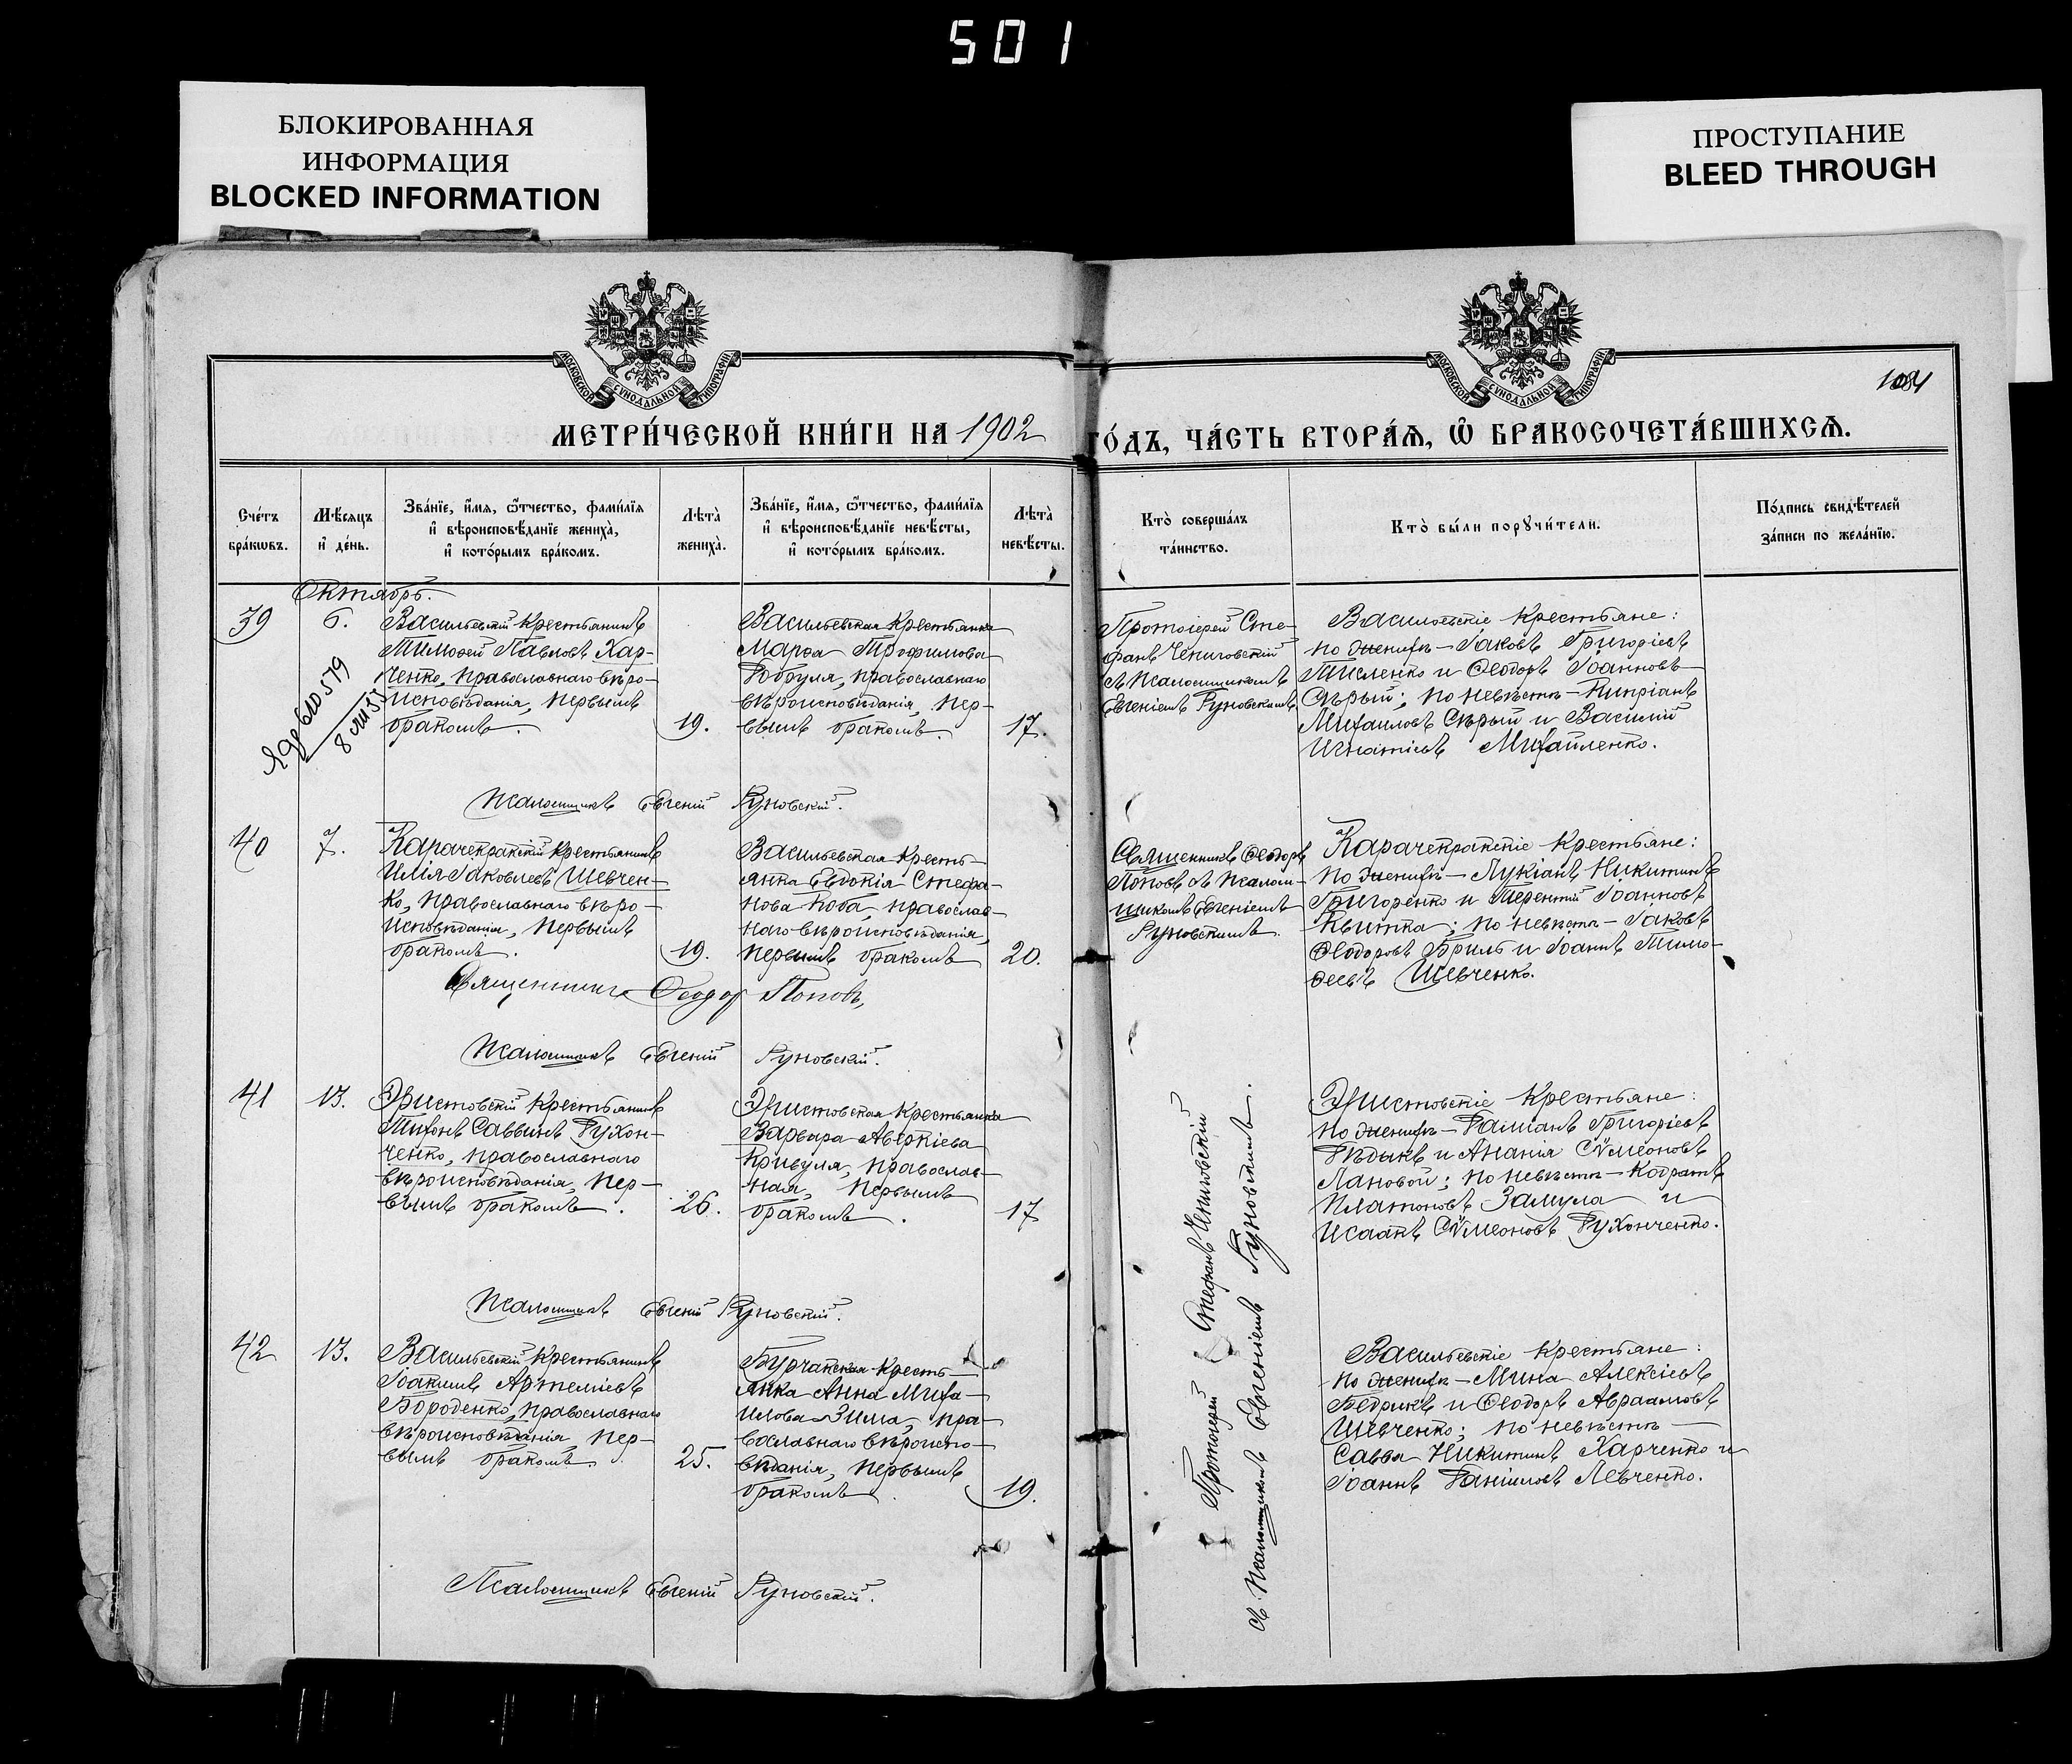 501
БЛОКИРОВАННАЯ
ИНФОРМАЦИЯ
BLOCKED INFORMATION
ПРОСТУПАНИЕ
BLEED THROUGH
МОСКОВСКОЙ СУНОДАЛЬНОЙ ТИПОГРАФІИ
МОСКОВСКОЙ СУНОДАЛЬНОЙ ТИПОГРАФІИ
МЕТРИ́ЧЕСКОЙ КНИ́ГИ НА 1902
ГО́ДЪ, ЧА́СТЬ ВТОРА́Ѧ, Ѡ҆ БРАКОСОЧЕТА́ВШИХСѦ.
Сче́тъ
бра́кѡвъ.
Мѣ́сяцъ
и҆ де́нь.
Зва́нїе, и҆́мя, ѻ҆́тчество, фами́лїя
и҆ вѣроисповѣ́данїе жениха̀,
и҆ кото́рымъ бра́комъ.
Лѣта̀
жениха̀.
Зва́нїе, и҆́мя, ѻ҆́тчество, фами́лїя
и҆ вѣроисповѣ́данїе невѣ́сты,
и҆ кото́рымъ бра́комъ.
Лѣта̀
невѣ́сты.
Кто̀ соверша́лъ
та́инство.
Кто̀ бы́ли порꙋчи́тели.
По́дпись свидѣ́телей
за́писи по жела́нїю.
Октябрь.
39
6.
Васильевскій крестьянинъ
Тимоѳей Павловъ Хар-
ченко, православнаго вѣро-
исповѣданія, первымъ
бракомъ.
19.
Васильевская крестьянка
Марѳа Трофимова
православнаго
вѣроисповѣданія, пер-
вымъ бракомъ.
17.
Протоіерей Сте-
фанъ Чениговскій
съ Псаломщикомъ
Евгеніемъ Руновскимъ
Васильевскіе крестьяне:
по женихѣ – Іаковъ Григоріевъ
Тисленко и Ѳеодоръ Іоанновъ
Сѣрый; по невѣстѣ – Кипріанъ
Михаиловъ Сѣрый и Василій
Игнатіевъ Михайленко.
Псаломщикъ Евгеній Руновскій.
40
7.
Карачекракскій крестьянинъ
Илія Іаковлевъ Шевчен-
ко, православнаго вѣро-
исповѣданія, первымъ
бракомъ.
19.
Васильевская кресть-
янка Евдокія Стефа-
нова православ-
наго вѣроисповѣданія,
первымъ бракомъ
20.
Священникъ Ѳеодоръ
Поповъ съ Псалом-
щикомъ Евгеніемъ
Руновскимъ.
Карачекракскіе крестьяне:
по женихѣ – Лукіанъ Никитинъ
Григоренко и Терентій Іоанновъ
Квитка; по невѣстѣ – Іаковъ
Ѳеодоровъ Бриль и Іоаннъ Тимо-
ѳеевъ Шевченко.
Священникъ Ѳеодор Поповъ,
Псаломщикъ Евгеній Руновскій.
41
13.
Эристовскій крестьянинъ
Тихонъ Саввинъ Духон-
ченко, православнаго
вѣроисповѣданія, пер-
вымъ бракомъ.
26.
Эристовская крестьянка
Варвара Аверкіева
Кривуля, православ-
ная, первымъ
бракомъ.
17
Протоіерей Стефанъ Чениговскій
съ Псаломщикомъ Евгеніемъ Руновскимъ.
Эристовскіе крестьяне:
по женихѣ – Даміанъ Григоріевъ
Дѣдыкъ и Ананія Сѵмеоновъ
Лановой; по невѣстѣ – Кодратъ
Платоновъ Замула и
Исаакъ Сѵмеоновъ Духонченко.
Псаломщикъ Евгеній Руновскій.
42
13.
Васильевскій крестьянинъ
Іоакимъ Артеміевъ
Бороденко, православнаго
вѣроисповѣданія, пер-
вымъ бракомъ.
25.
Бурчакская кресть-
янка Анна Миха-
илова Зима, пра-
вославнаго вѣроиспо-
вѣданія, первымъ
бракомъ.
19.
Васильевскіе крестьяне:
по женихѣ – Мина Алексіевъ
Бедрикъ и Ѳеодоръ Авраамовъ
Шевченко; по невѣстѣ –
Савва Никитинъ Харченко и
Іоаннъ Даніиловъ Левченко.
Псаломщикъ Евгеній Руновскій.